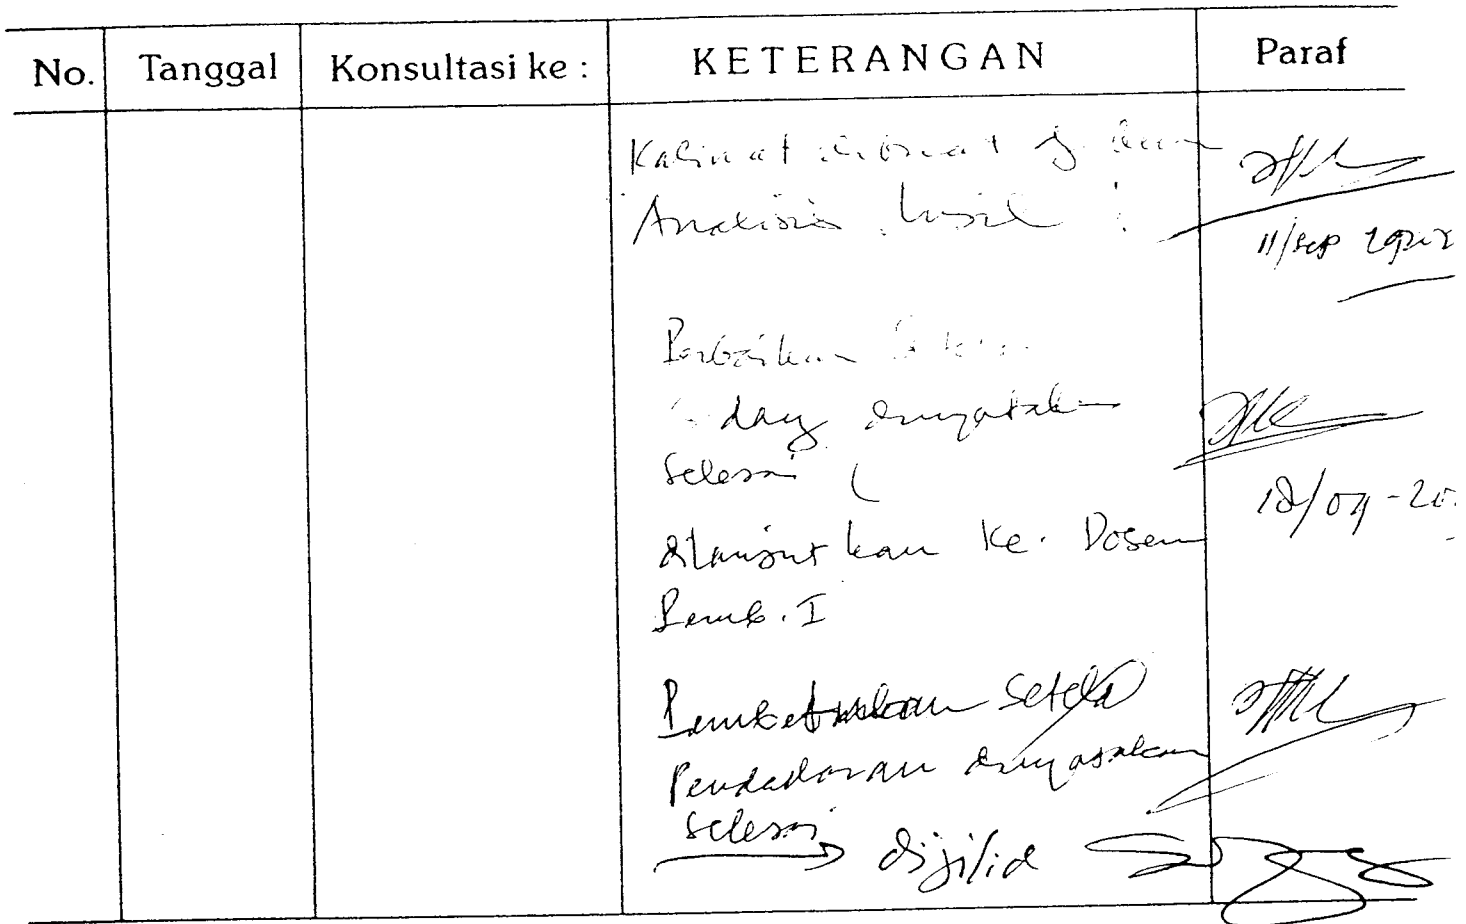 No. Tanggal Konsultasi ke : KETERANGAN Paraf
Kalimat dibuat
Analisis hasil !
11/sep
Perbaikan
dinyatakan
selesai
18/09-20
dilanjutkan ke. Dosen
Pemb. I
Pembetulan Setelah
Pendadaran dinyatakan
selesai dijilid